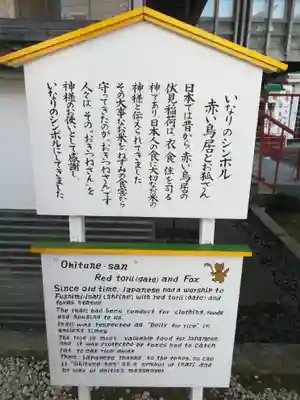 いなりのシンボル
赤い鳥居とお狐さん
日本では昔から、赤い鳥居の
伏見稲荷は、衣、食、住を司る
神であり日本人の食に大切なお米の
神様と伝えられてきました。
その大事なお米を、ねずみの食害から
守ってきたのが、"おきつねさん"です
人々は、その"おきつねさん"を
神様のお使いとして感謝し、
いなりのシンボルにしてきました
"Okitune-san"
Red torii(gate) and Fox
Since old time, Japanese had a worship to
Fushimi,Inari (Shrine) with red torii (gate) and
foxes statue
The Inari had been conduct for clothing, foods
and housing to us.
Inari was respected as "Deity for rice" in
ancient times
The rice is most valuable food for Japanese
and it was protected by foxes had to catch
rat to take rice away
Then Japanese thanks to the foxes, so call
it "Okitune-san" as a symbol of Inari and
by way of deitis's messenger